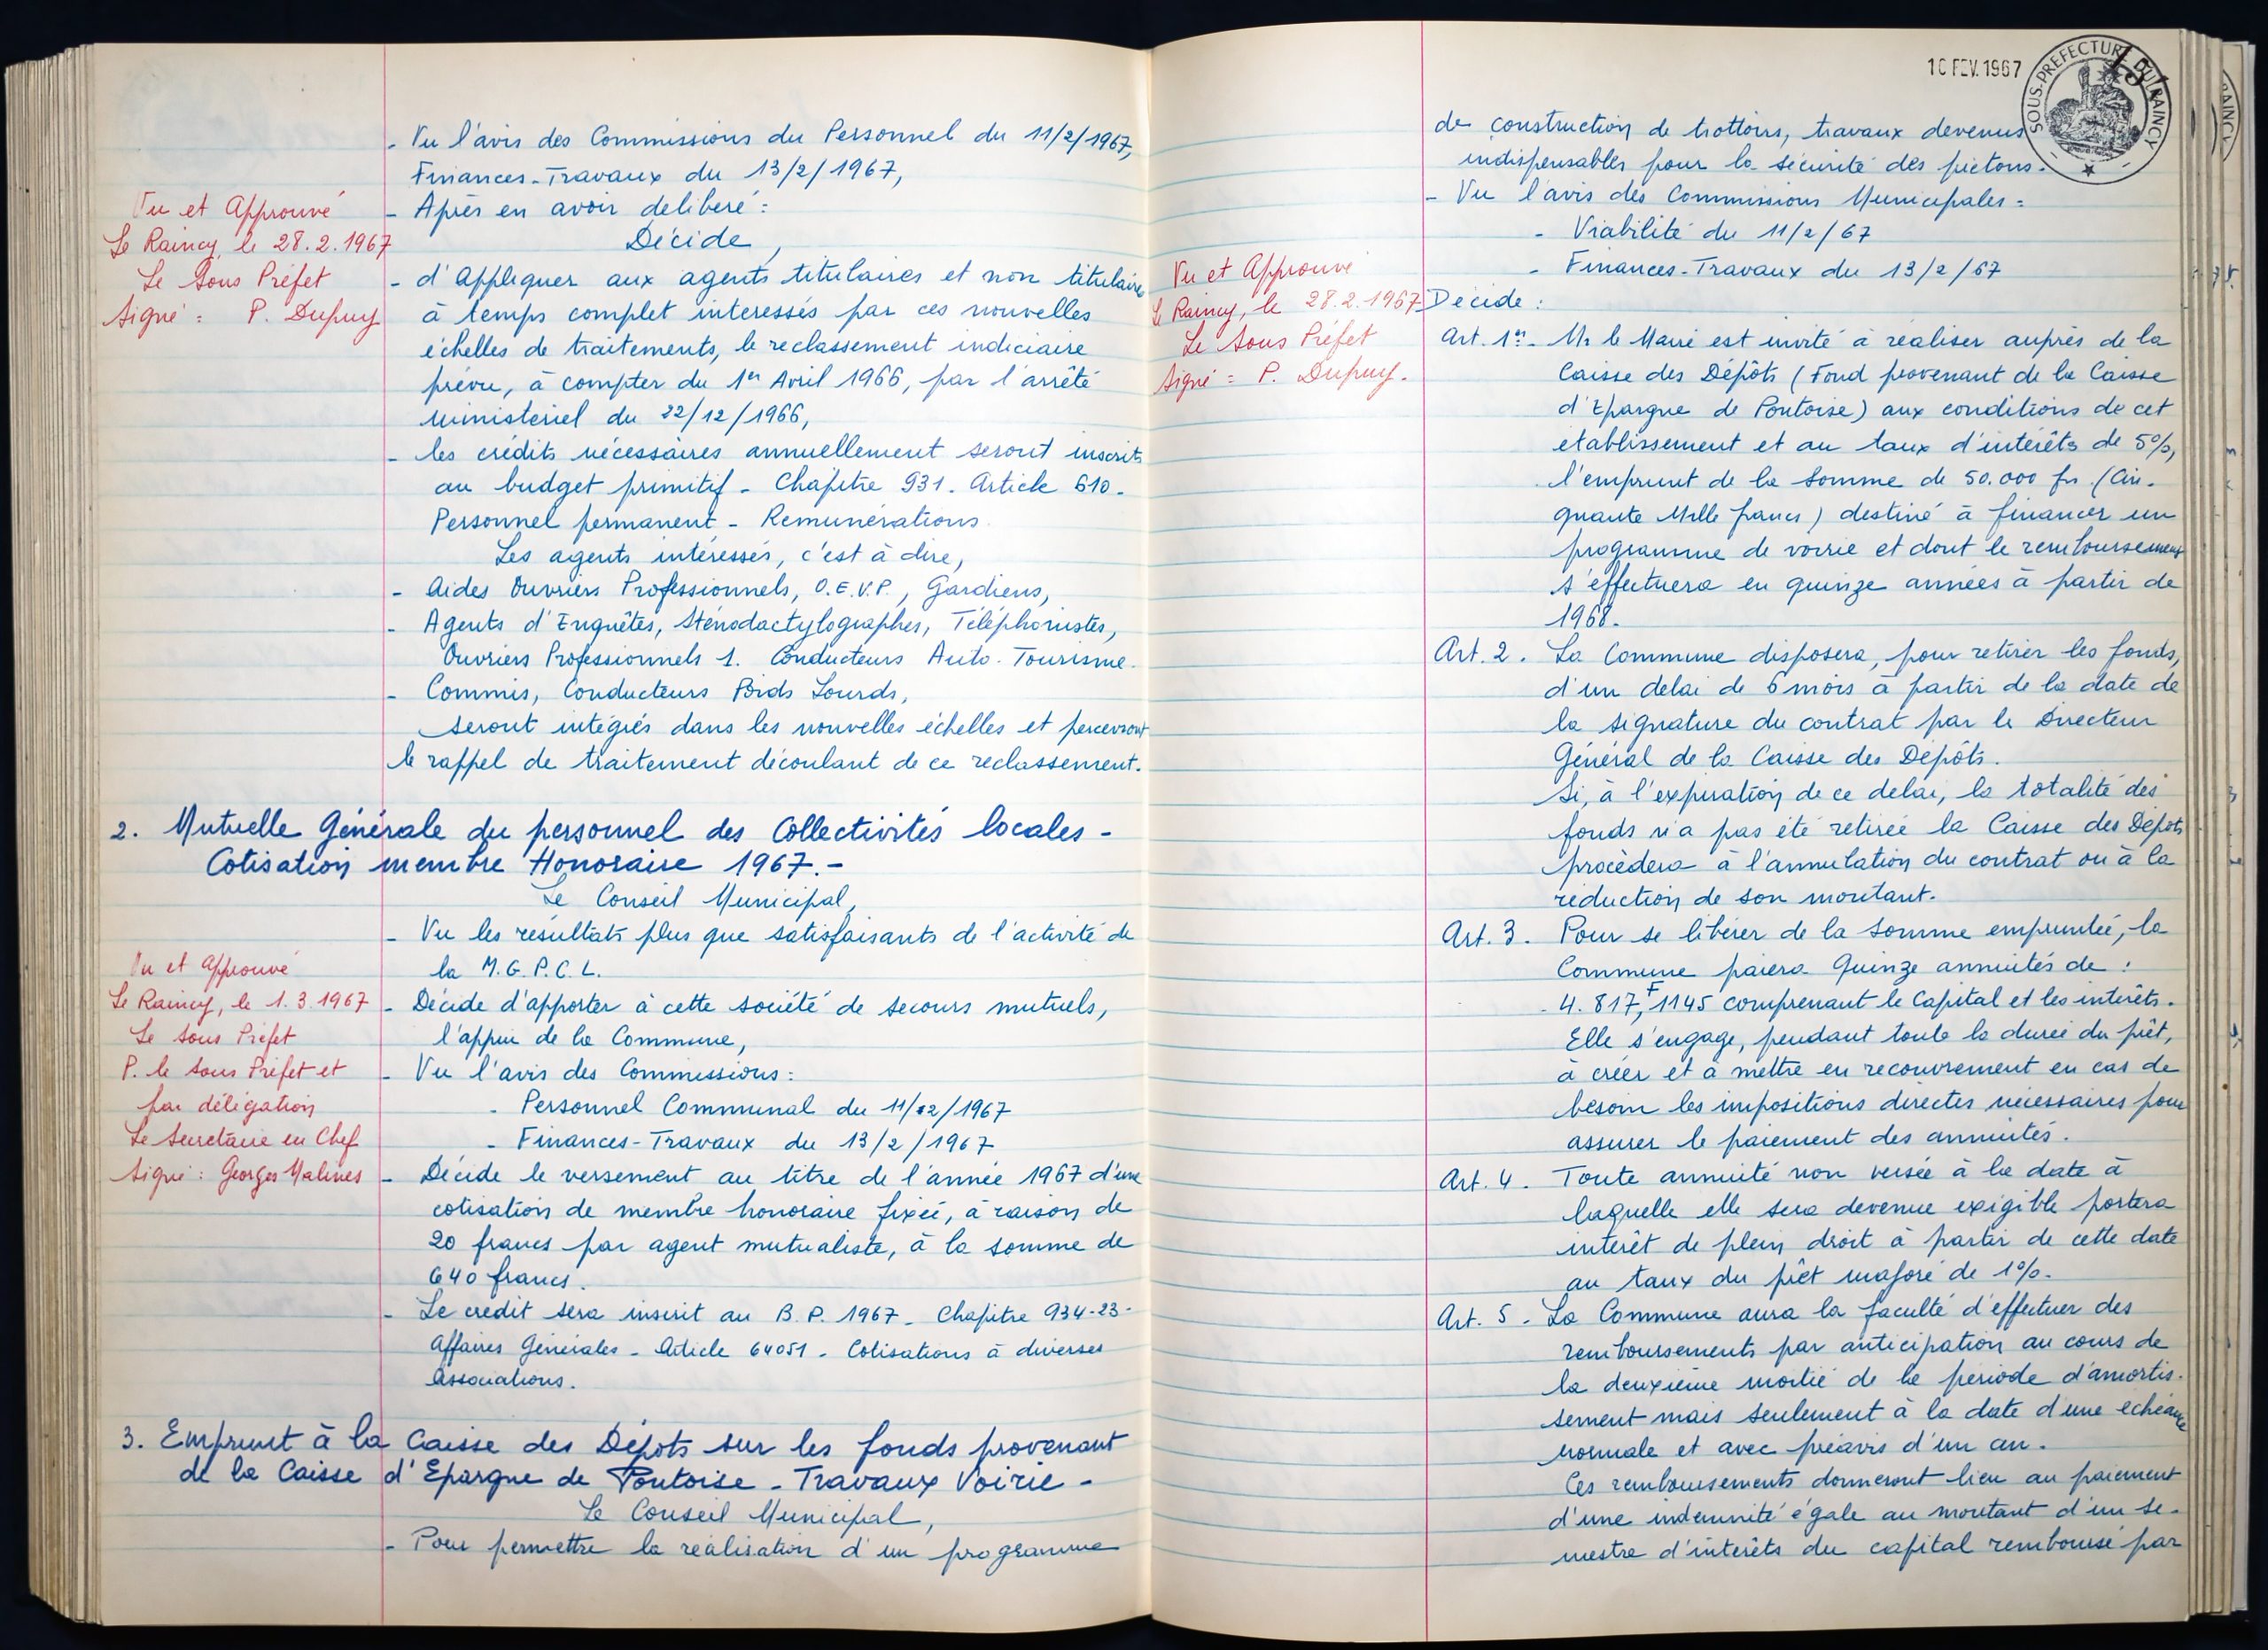 - Vu l'avis des Commissions du Personnel du 11/2/1967,
Finances-Travaux du 13/2/1967,
- Après en avoir délibéré :
Décide,
- d'appliquer aux agents titulaires et non titulaires
à temps complet intéressés par ces nouvelles
échelles de traitements, le reclassement indiciaire
prévu, à compter du 1er Avril 1966, par l'arrêté
ministériel du 22/12/1966,
- les crédits nécessaires annuellement seront inscrits
au budget primitif - Chapitre 931. Article 610 -
Personnel permanent - Rémunérations
Les agents intéressés, c'est à dire,
- Aides Ouvriers Professionnels, O.E.V.P., Gardiens,
- Agents d'Enquêtes, Sténodactylographes, Téléphonistes,
Ouvriers Professionnels 1. Conducteurs Auto-Tourisme.
- Commis, Conducteurs Poids Lourds,
seront intégrés dans les nouvelles échelles et percevront
le rappel de traitement découlant de ce reclassement.
Vu et Approuvé
Le Raincy, le 28.2.1967
Le Sous Préfet
Signé : P. Dupuy
2. Mutuelle Générale du personnel des Collectivités locales -
Cotisation membre Honoraire 1967.-
Le Conseil Municipal,
- Vu les résultats plus que satisfaisants de l'activité de
la M.G.P.C.L.
- Décide d'apporter à cette société de secours mutuels,
l'appui de la Commune,
- Vu l'avis des Commissions :
- Personnel Communal du 11/2/1967
- Finances-Travaux du 13/2/1967
- Décide le versement au titre de l'année 1967 d'une
cotisation de membre honoraire fixée, à raison de
20 francs par agent mutualiste, à la somme de
640 francs.
- Le crédit sera inscrit au B.P. 1967 - Chapitre 934-23-
Affaires Générales - Article 64051 - Cotisations à diverses
Associations.
Vu et Approuvé
Le Raincy, le 1.3.1967
Le Sous Préfet
P. le Sous Préfet et
par délégation
Le Secrétaire en Chef
Signé : Georges Malines
3. Emprunt à la Caisse des Dépots sur les fonds provenant
de la Caisse d'Epargne de Pontoise - Travaux Voirie -
Le Conseil Municipal,
- Pour permettre la réalisation d'un programme
10 FEV. 1967
SOUS-PREFECTURE DU RAINCY
de construction de trottoirs, travaux devenus
indispensables pour la sécurité des piétons.
- Vu l'avis des Commissions Municipales :
- Viabilité du 11/2/67
- Finances-Travaux du 13/2/67
Vu et Approuvé
Le Raincy, le 28.2.1967
Le Sous Préfet
Signé : P. Dupuy.
Décide :
Art. 1er - Mr le Maire est invité à réaliser auprès de la
Caisse des Dépôts (Fond provenant de la Caisse
d'Epargne de Pontoise) aux conditions de cet
établissement et au taux d'intérêts de 5%,
l'emprunt de la somme de 50.000 frs. (Cin-
quante Mille francs) destiné à financer un
programme de voirie et dont le remboursement
s'effectuera en quinze années à partir de
1968.
Art. 2. La Commune disposera, pour retirer les fonds,
d'un délai de 6 mois à partir de la date de
la signature du contrat par le Directeur
Général de la Caisse des Dépôts.
Si, à l'expiration de ce délai, la totalité des
fonds n'a pas été retirée la Caisse des Dépots
procèdera à l'annulation du contrat ou à la
réduction de son montant.
Art. 3. Pour se libérer de la somme empruntée, la
Commune paiera Quinze annuités de :
4.817,F1145 comprenant le Capital et les intérêts.
Elle s'engage, pendant toute la durée du prêt,
à créer et à mettre en recouvrement en cas de
besoin les impositions directes nécessaires pour
assurer le paiement des annuités.
Art. 4. Toute annuité non versée à la date à
laquelle elle sera devenue exigible portera
intérêt de plein droit à partir de cette date
au taux du prêt majoré de 1%.
Art. 5. La Commune aura la faculté d'effectuer des
remboursements par anticipation au cours de
la deuxième moitié de la période d'amortis-
sement mais seulement à la date d'une échéance
normale et avec préavis d'un an.
Ces remboursements donneront lieu au paiement
d'une indemnité égale au montant d'un se-
mestre d'intérêts du capital remboursé par